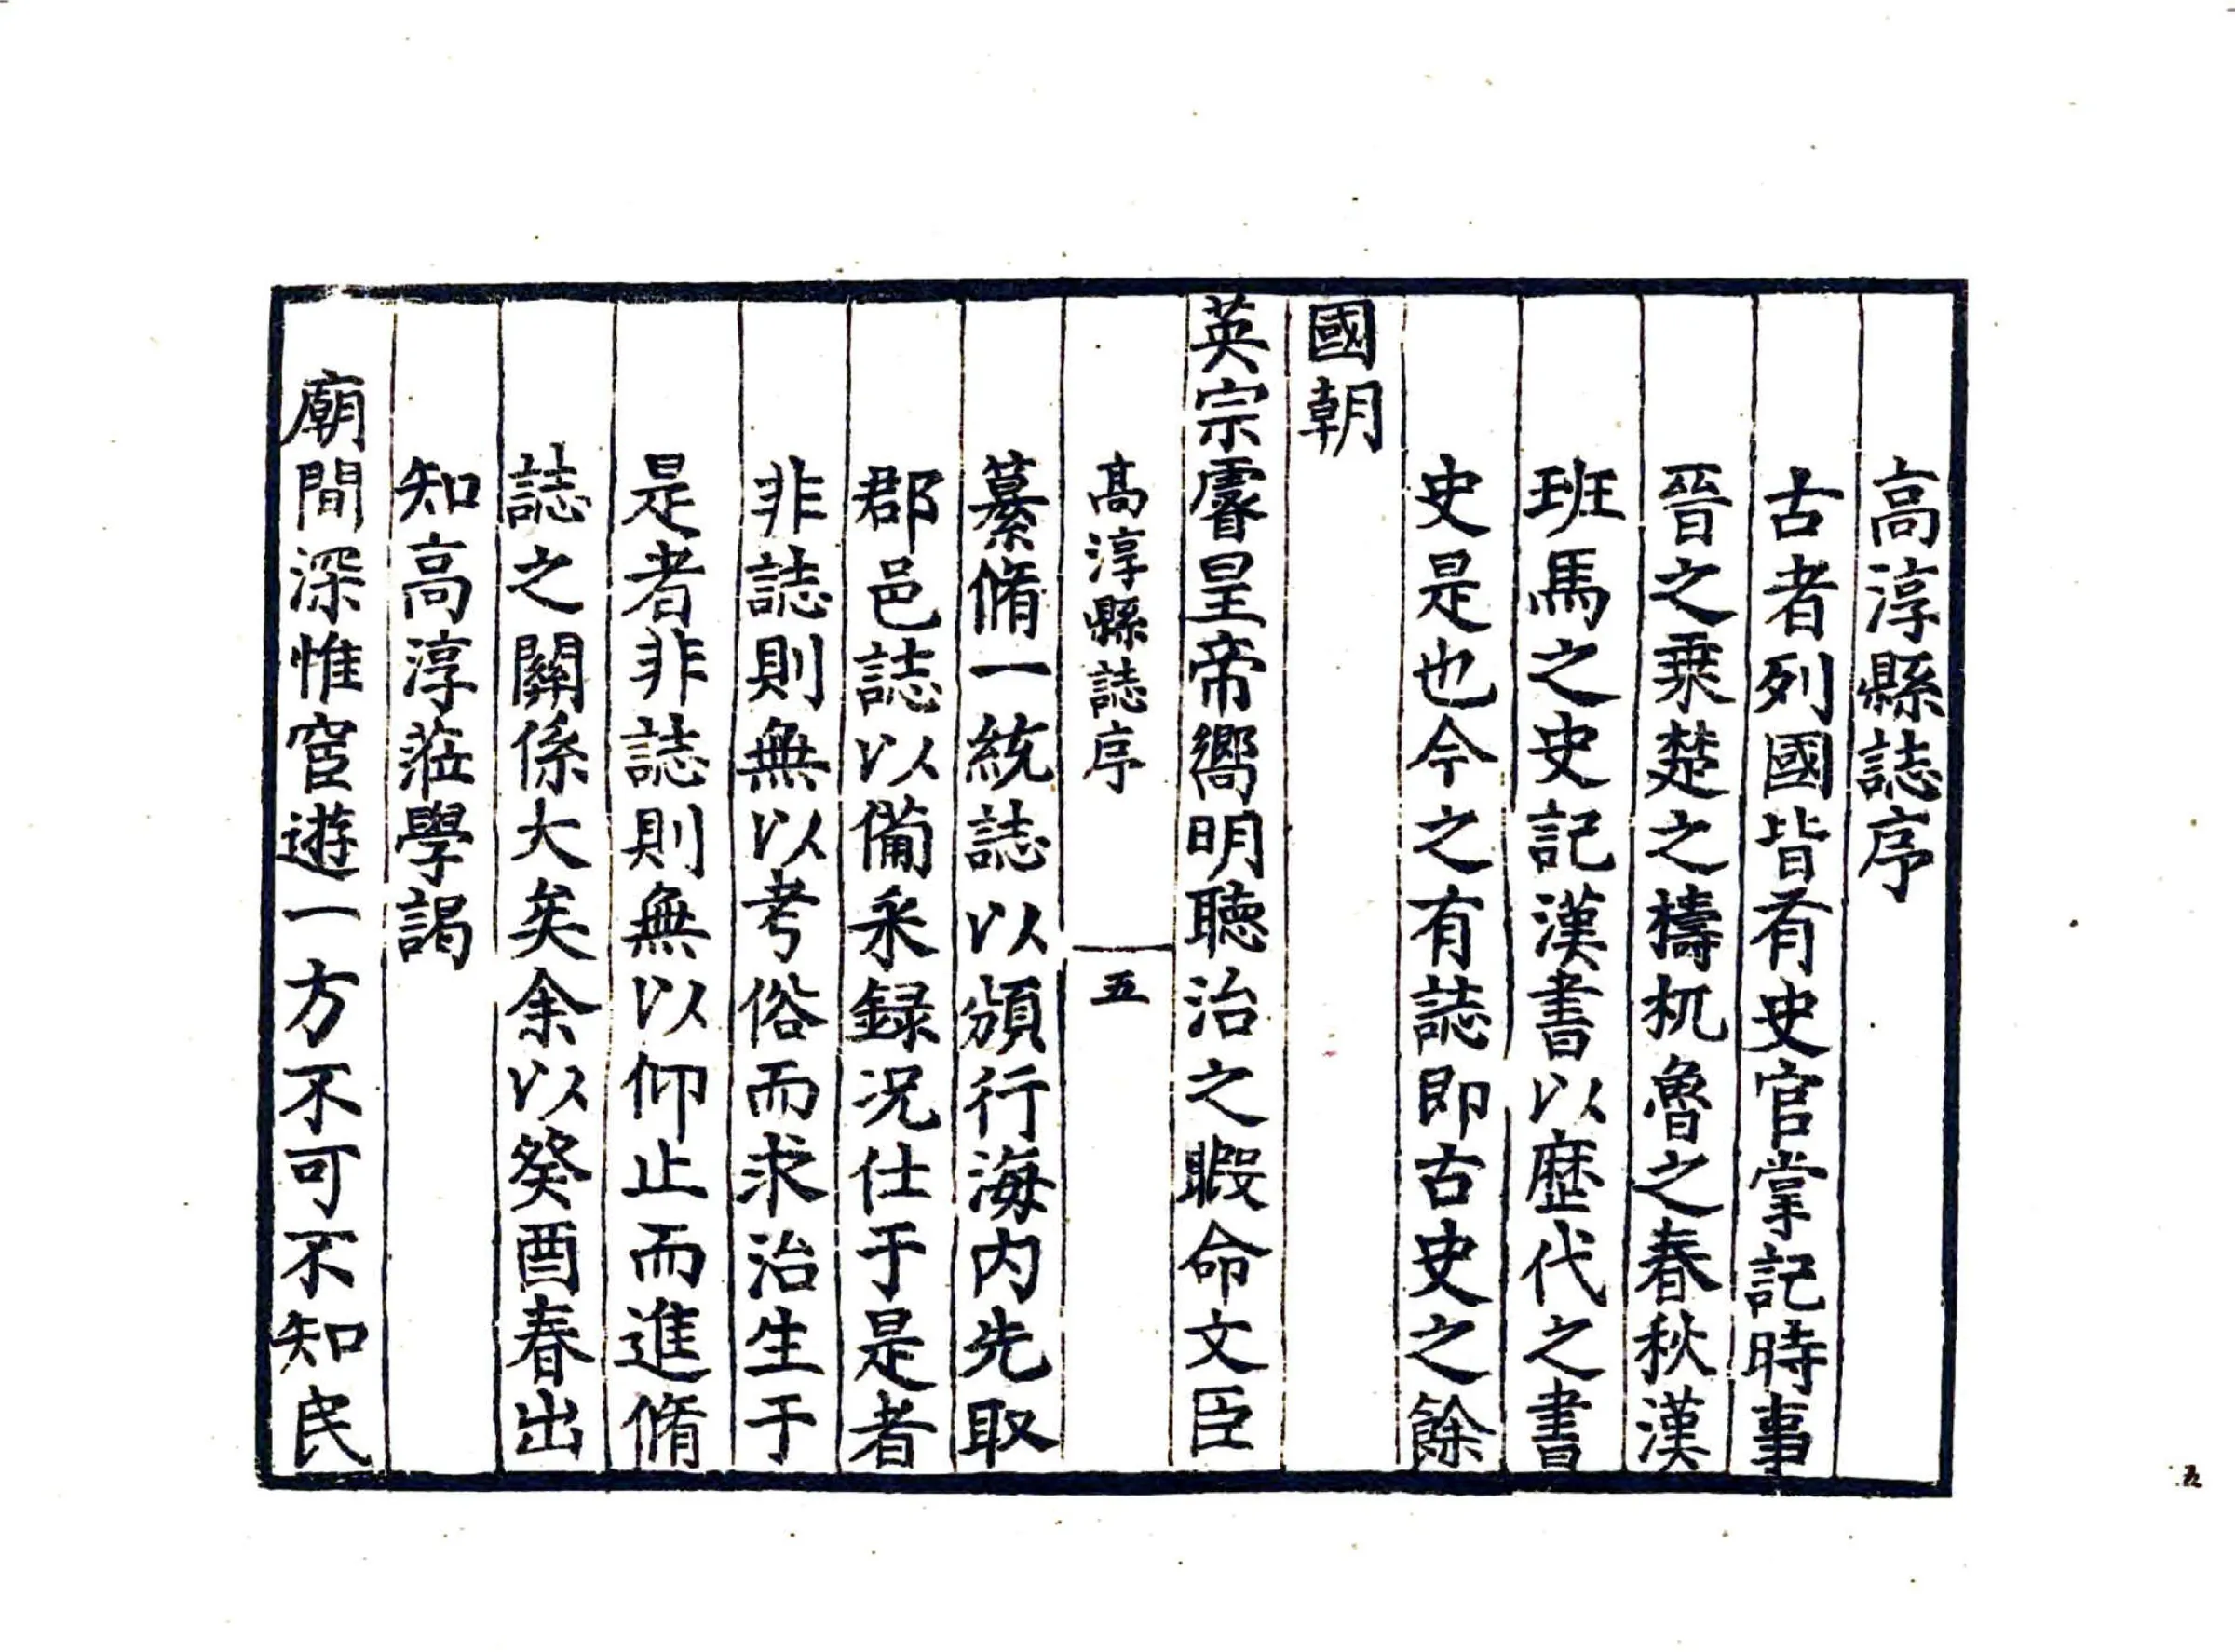 高淳縣誌序
古者列國皆有史官掌記時事
晉之乗楚之檮杌魯之春秋漢
班馬之史記漢書以歷代之書
史是也今之有誌即古史之餘
國朝
英宗睿皇帝嚮明聽治之暇命文臣
高淳縣誌序
五
纂脩一統誌以頒行海内先取
郡邑誌以備采録况仕于是者
非誌則無以考俗而求治生于
是者非誌則無以仰止而進脩
誌之關係大矣余以癸酉春出
知高淳蒞學謁
廟間深惟宦遊一方不可不知民
五